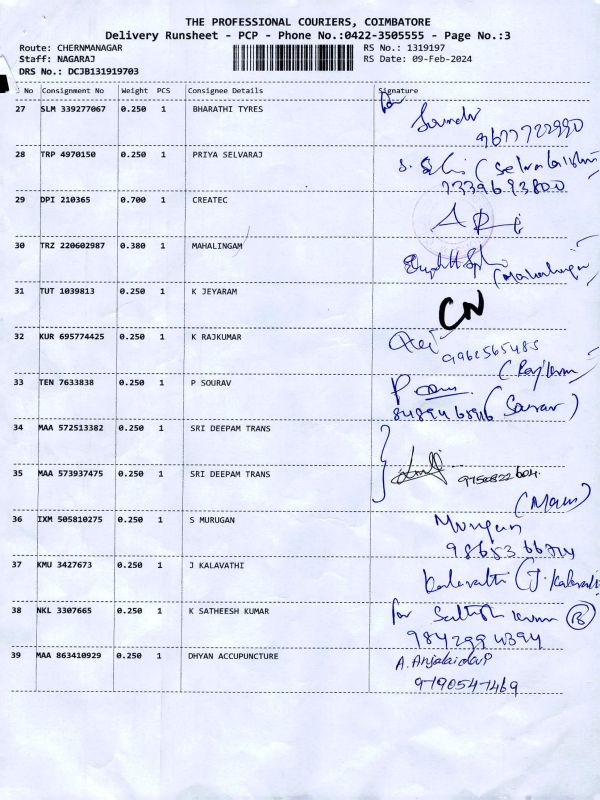 THE PROFESSIONAL COURIERS, COIMBATORE
Delivery Runsheet - PCP - Phone No.:0422-3505555 - Page No.:3
Route: CHERNMANAGAR RS No.: 1319197
Staff: NAGARAJ RS Date: 09-Feb-2024
DRS No.: DCJB131919703
No Consignment No Weight PCS Consignee Details Signature
27 SLM 339277067 0.250 1 BHARATHI TYRES
9677722990
28 TRP 4970150 0.250 1 PRIYA SELVARAJ
7339693800
29 DPI 210365 0.700 1 CREATEC
30 TRZ 220602987 0.380 1 MAHALINGAM
31 TUT 1039813 0.250 1 K JEYARAM
CN
32 KUR 695774425 0.250 1 K RAJKUMAR
9962565485
33 TEN 7633838 0.250 1 P SOURAV
(Sourav)
34 MAA 572513382 0.250 1 SRI DEEPAM TRANS
35 MAA 573937475 0.250 1 SRI DEEPAM TRANS
36 IXM 505810275 0.250 1 S MURUGAN
Murugan
37 KMU 3427673 0.250 1 J KALAVATHI
Kalavathi
38 NKL 3307665 0.250 1 K SATHEESH KUMAR
for
9842994394
39 MAA 863410929 0.250 1 DHYAN ACCUPUNCTURE
9790547469